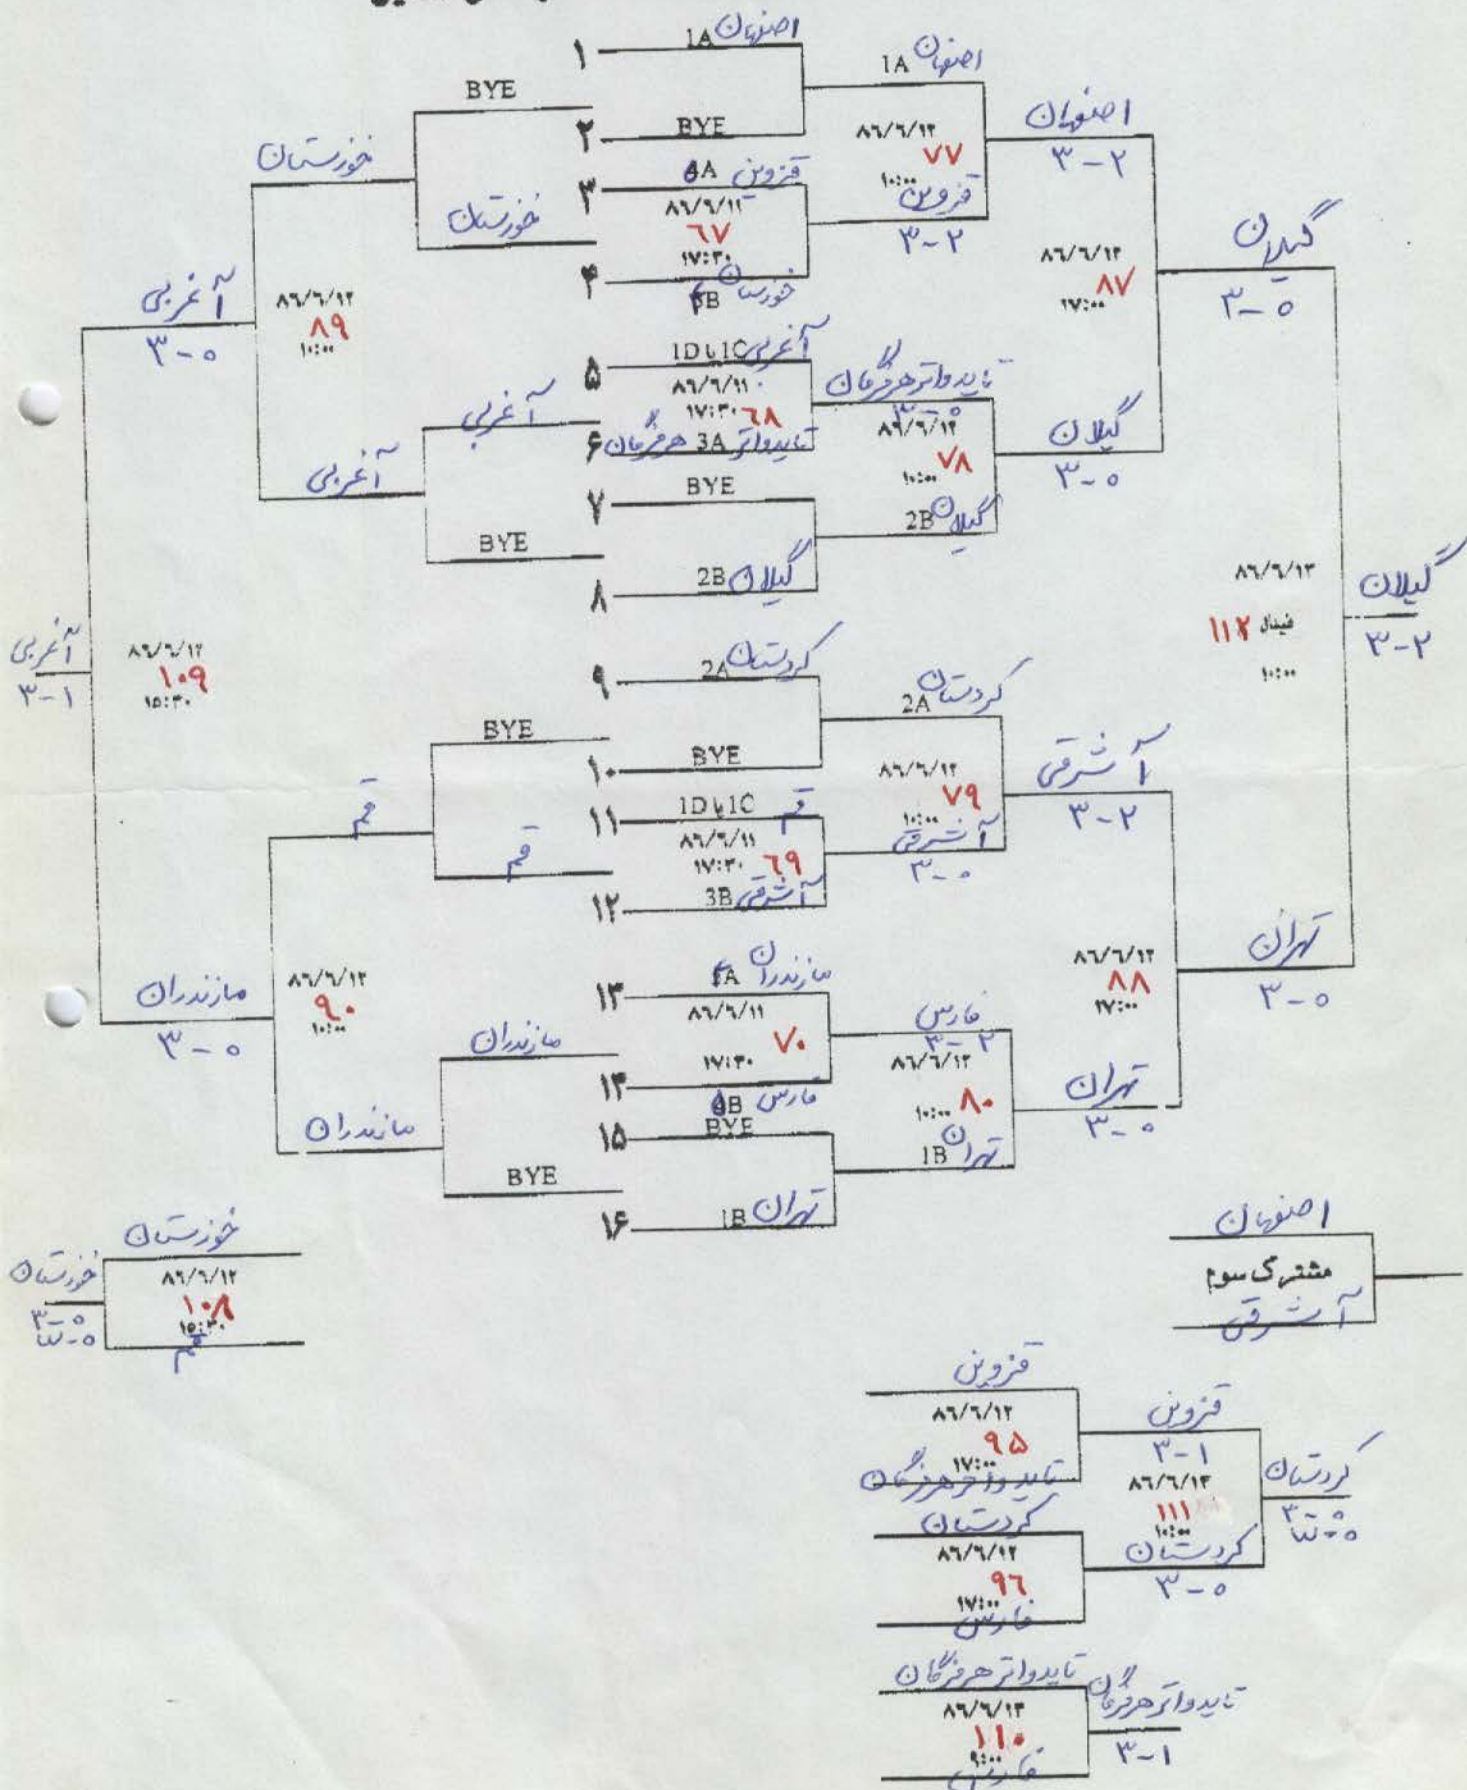 ۱ 1A اصفهان
BYE
۲ BYE
1A اصفهان
۸۶/۶/۱۲
۷۷
۱۰:۰۰
اصفهان
۳-۲
خوزستان
خوزستان
۳ 5A قزوین
۸۶/۶/۱۱
۶۷
۱۷:۳۰
۴ 4B خوزستان
قزوین
۳-۲
۸۶/۶/۱۲
۸۷
۱۷:۰۰
گیلان
۳-۰
آ غربی
۳-۰
۸۶/۶/۱۲
۸۹
۱۰:۰۰
۵ 1D یا 1C آ غربی
۸۶/۶/۱۱
۱۷:۳۰ ۶۸
۶ تایدواتر هرمزگان 3A
تایدواتر هرمزگان
۳-۰
۸۶/۶/۱۲
۷۸
۱۰:۰۰
گیلان
۳-۰
آ غربی
آ غربی
۷ BYE
BYE
2B گیلان
۸ 2B گیلان
۸۶/۶/۱۳
فینال ۱۱۲
۱۰:۰۰
گیلان
۳-۲
آ غربی
۳-۱
۸۶/۶/۱۲
۱۰۹
۱۵:۳۰
۹ 2A کردستان
BYE
۱۰ BYE
2A کردستان
۸۶/۶/۱۲
۷۹
۱۰:۰۰
آ شرقی
۳-۲
قم
قم
۱۱ 1D یا 1C قم
۸۶/۶/۱۱
۱۷:۳۰ ۶۹
۱۲ 3B آ شرقی
آ شرقی
۳-۰
۸۶/۶/۱۲
۸۸
۱۷:۰۰
تهران
۳-۰
مازندران
۳-۰
۸۶/۶/۱۲
۹۰
۱۰:۰۰
۱۳ 4A مازندران
۸۶/۶/۱۱
۷۰
۱۷:۳۰
۱۴ 5B فارس
فارس
۳-۲
۸۶/۶/۱۲
۱۰:۰۰ ۸۰
تهران
۳-۰
مازندران
مازندران
۱۵ BYE
BYE
1B تهران
۱۶ 1B تهران
خوزستان
۸۶/۶/۱۲
۱۰۸
۱۵:۳۰
قم
خوزستان
۳-۰
اصفهان
مشترک سوم
آ شرقی
قزوین
۸۶/۶/۱۲
۹۵
۱۷:۰۰
تایدواتر هرمزگان
قزوین
۳-۱
۸۶/۶/۱۳
۱۱۱
۱۰:۰۰
کردستان
۳-۰
کردستان
۸۶/۶/۱۲
۹۶
۱۷:۰۰
فارس
کردستان
۳-۰
تایدواتر هرمزگان
۸۶/۶/۱۳
۱۱۰
۹:۰۰
فارس
تایدواتر هرمزگان
۳-۱